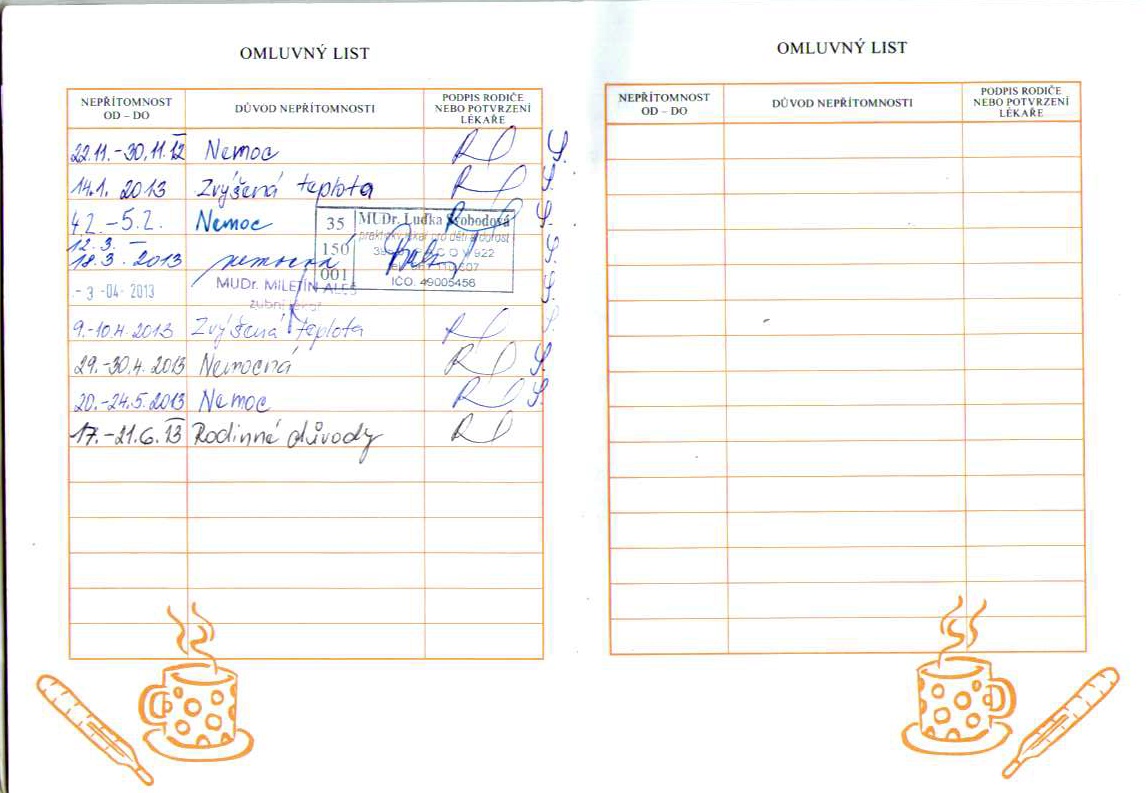 OMLUVNÝ LIST
NEPŘÍTOMNOST OD – DO
DŮVOD NEPŘÍTOMNOSTI
PODPIS RODIČE NEBO POTVRZENÍ LÉKAŘE
22.11.-30.11.12 Nemoc
14.1. 2013 Zvýšená teplota
4.2. -5.2. Nemoc
35 MUDr. Luďka Svobodová
praktický lékař pro děti a dorost
12.3. –
150
18.3. 2013 nemocná
001
IČO: 49005456
- 3 -04- 2013 MUDr. MILETÍN ALEŠ
zubní lékař
9.-10.4. 2013 Zvýšená teplota
29.-30.4. 2013 Nemocná
20.-24.5. 2013 Nemoc
17.-21.6. 13 Rodinné důvody
OMLUVNÝ LIST
NEPŘÍTOMNOST OD – DO
DŮVOD NEPŘÍTOMNOSTI
PODPIS RODIČE NEBO POTVRZENÍ LÉKAŘE